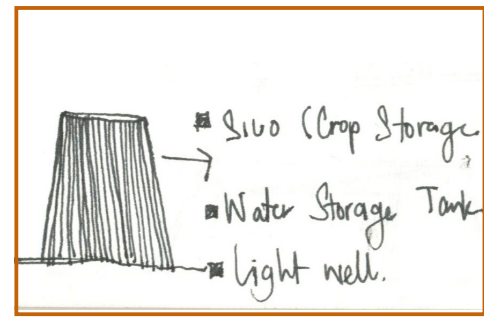 Silo (Crop Storage
Water Storage Tank
Light well.